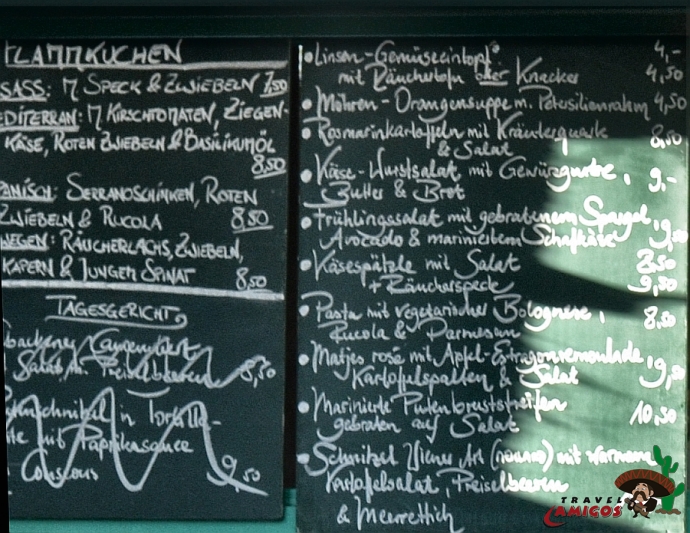 FLAMMKUCHEN
SASS: M SPECK & ZWIEBELN 7,50
EDITERRAN: M KIRSCHTOMATEN, ZIEGEN-
KÄSE, ROTEN ZWIEBELN & BASILIKUMÖL
8,50
ANISCH: SERRANOSCHINKEN, ROTEN
ZWIEBELN & RUCOLA 8,50
WEGEN: RÄUCHERLACHS, ZWIEBELN,
KAPERN & JUNGEM SPINAT 8,50
TAGESGERICHT:
backener Camembert
Salat m. Preiselbeeren 8,50
tenschnitzel in
mit Paprikasauce
Couscous 9,50
• Linsen-Gemüseeintopf 4,-
mit Räuchertofu oder Knacker 4,50
• Möhren-Orangensuppe m. Petersilienrahm 4,50
• Rosmarinkartoffeln mit Kräuterquark 8,50
& Salat
• Käse-Wurstsalat, mit Gewürzgurke, 9,-
Butter & Brot
• Frühlingssalat mit gebratenem Spargel,
Avocado & mariniertem Schafkäse 9,50
• Käsespätzle mit Salat 8,50
+ Räucherspeck 9,50
• Pasta mit vegetarischer Bolognese, 8,50
Rucola & Parmesan
• Matjes rosé mit Apfel-Estragonremoulade,
Kartoffelspalten & Salat 9,50
• Marinierte Putenbruststreifen 10,50
gebraten auf Salat
• Schnitzel Wiener Art mit warmem
Kartoffelsalat, Preiselbeeren
& Meerrettich
TRAVEL
AMIGOS